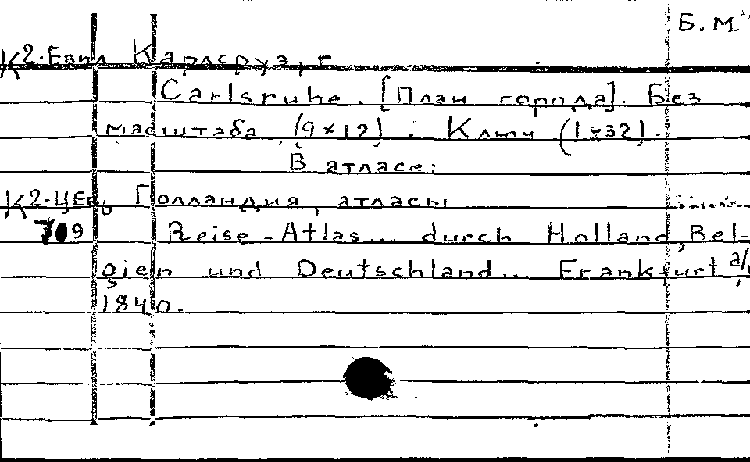 Б. М
К2-Евил Карлсруэ, г.
Carlsruhe. [План города]. Без
масштаба (9x12). Ключ (1-32).
В атласе:
К2-ЦЕв, Голландия, атласы
709 Reise-Atlas... durch Holland, Bel-
gien und Deutschland... Frankfurt a/
1840.